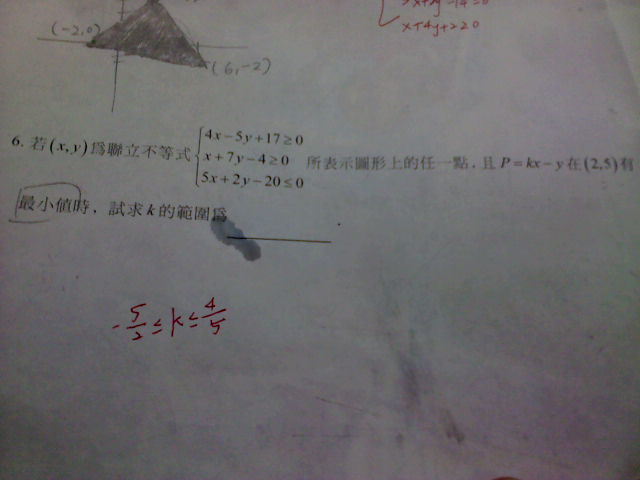 (-2,0)
(6,-2)
x+4y+2≥0
6. 若(x,y)為聯立不等式{4x-5y+17≥0
x+7y-4≥0
5x+2y-20≤0 所表示圖形上的任一點,且P=kx-y在(2,5)有
最小值時,試求k的範圍為
-5/2≤k≤4/5